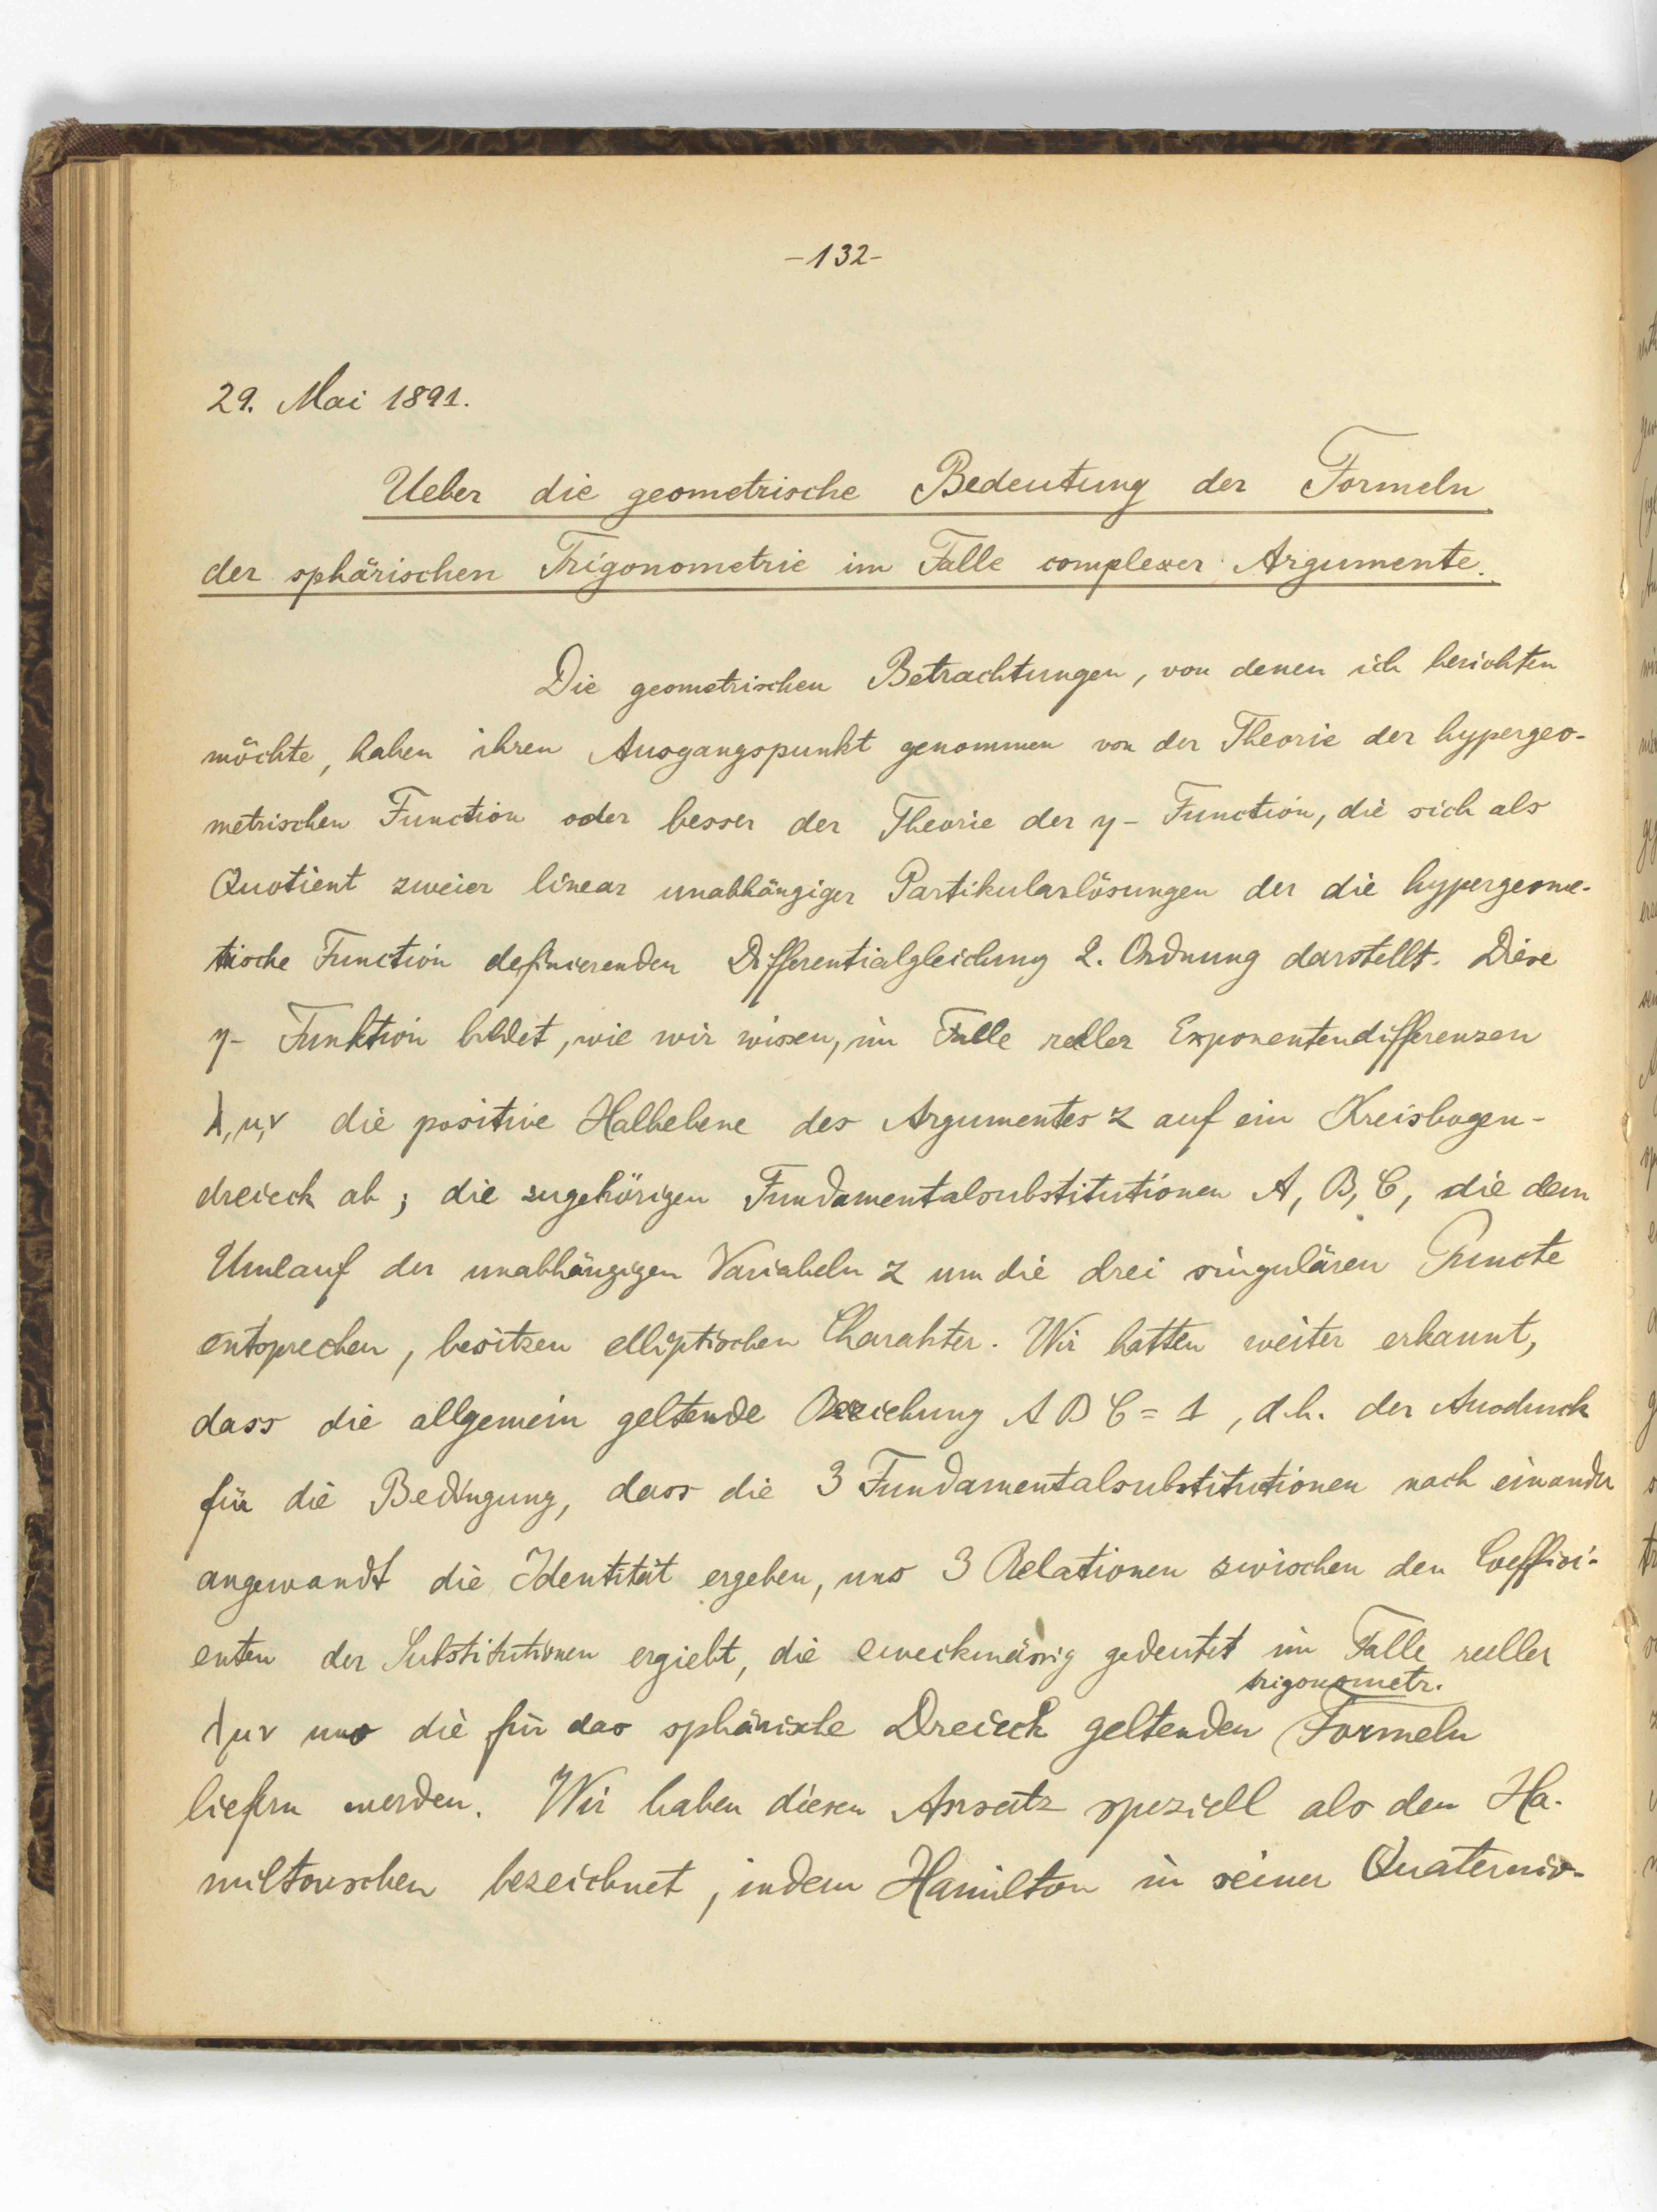 -132-
29. Mai 1891.
Ueber die geometrische Bedeutung der Formeln
der sphärischen Trigonometrie im Falle complexer Argumente.
Die geometrischen Betrachtungen, von denen ich berichten
möchte, haben ihren Ausgangspunkt genommen von der Theorie der hypergeo-
metrischen Function oder besser der Theorie der η- Function, die sich als
Quotient zweier linear unabhängiger Partikularlösungen der die hypergeome-
trische Function definierenden Differentialgleichung 2. Ordnung darstellt. Diese
η- Funktion bildet, wie wir wissen, im Falle reller Exponentendifferenzen
λ, μ, ν die positive Halbebene des Argumentes z auf ein Kreisbogen-
dreieck ab; die zugehörigen Fundamentalsubstitutionen A, B, C, die dem
Umlauf der unabhängigen Variabeln z um die drei singulären Puncte
entsprechen, besitzen elliptischen Charakter. Wir hatten weiter erkannt,
dass die allgemein geltende Beziehung A B C = 1, d.h. der Ausdruck
für die Bedingung, dass die 3 Fundamentalsubstitutionen nach einander
angewandt die Identität ergeben, uns 3 Relationen zwischen den Coeffici-
enten der Substitutionen ergiebt, die zweckmässig gedeutet im Falle reller
λ μ ν uns die für das sphärische Dreieck geltenden trigonometr. Formeln
liefern werden. Wir haben diesen Ansatz speziell als den Ha-
miltonschen bezeichnet, indem Hamilton in seiner Quaternio-